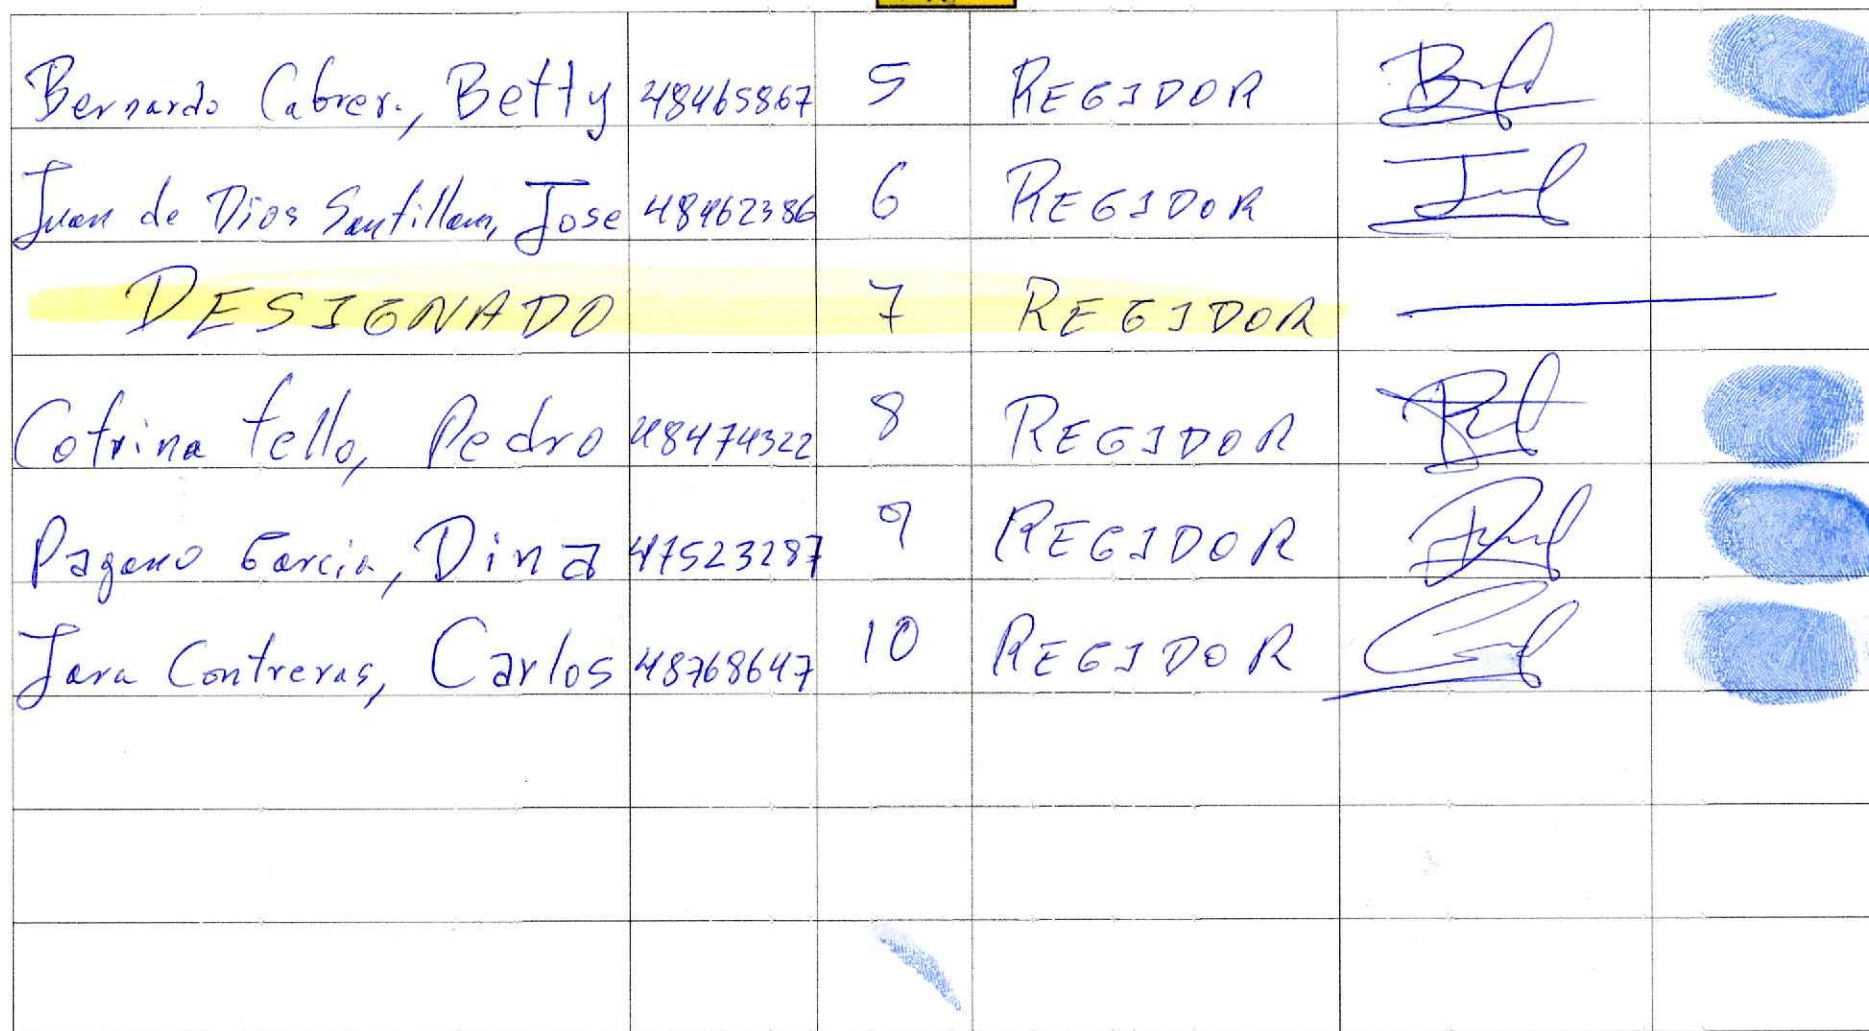 Bernardo Cabrer., Betty 48465867 5 REGIDOR
Juan de Dios Santillan, Jose 48462386 6 REGIDOR
DESIGNADO 7 REGIDOR
Cotrina Tello, Pedro 48474322 8 REGIDOR
Pagano Garcia, Dina 47523287 9 REGIDOR
Jara Contreras, Carlos 48768647 10 REGIDOR